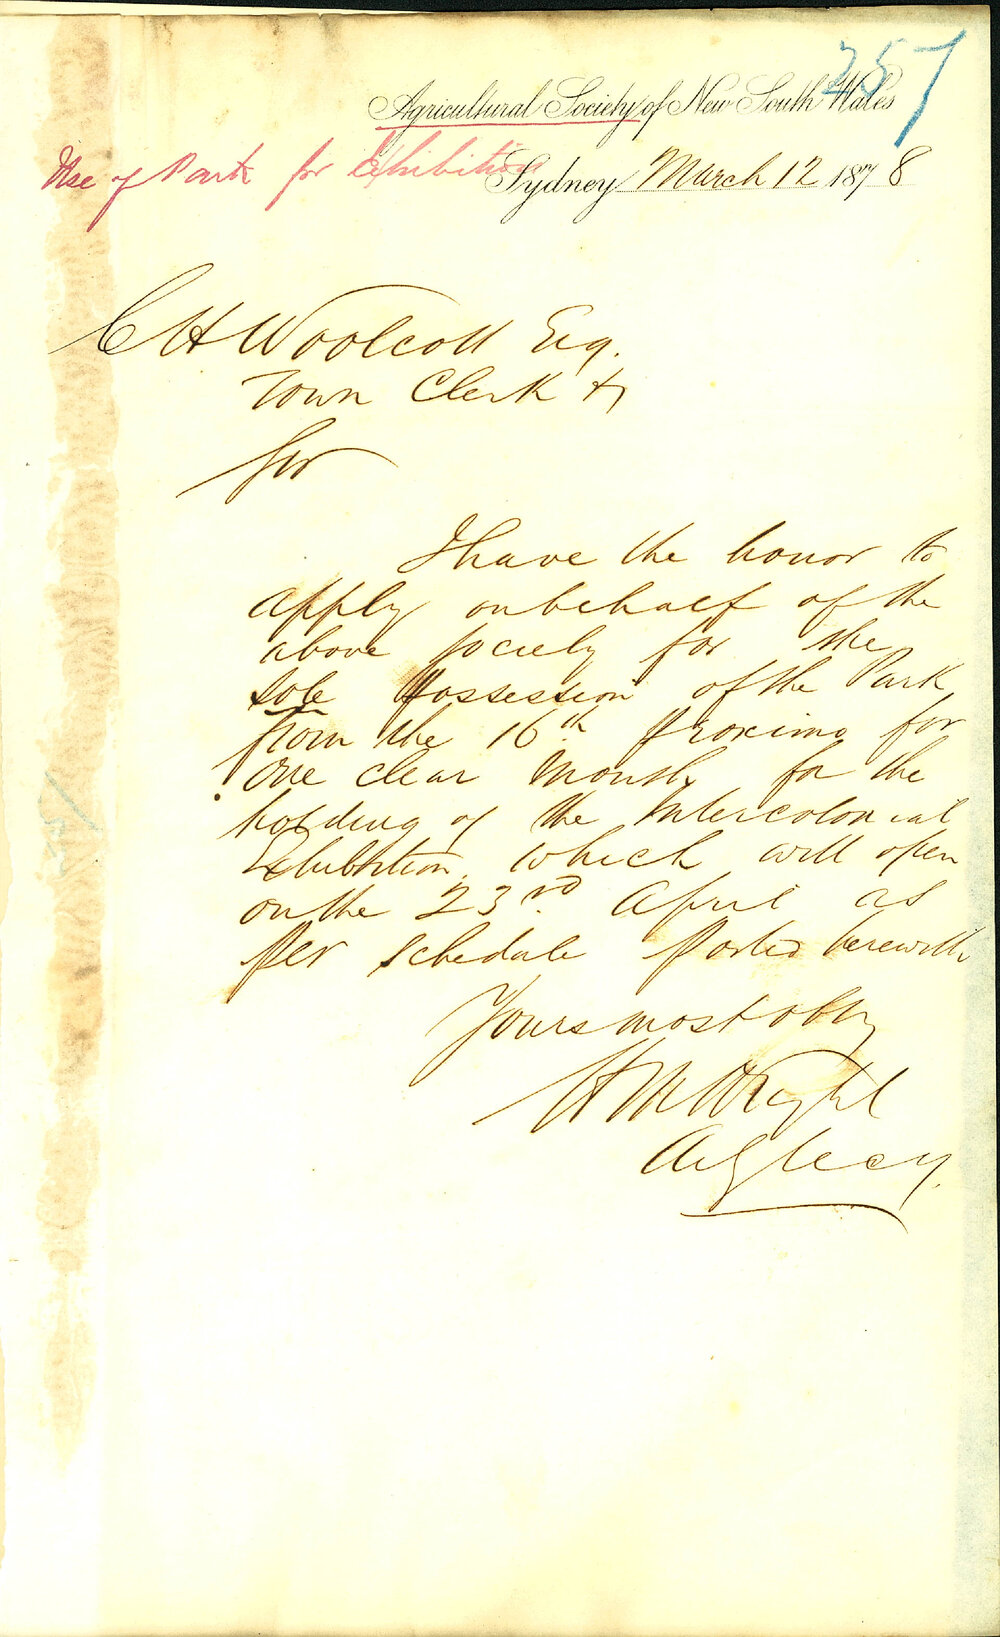 257
Agricultural Society of New South Wales
Use of Park for Exhibition
Sydney March 12 1878
C H Woolcott Esq.
Town Clerk &c
Sir
I have the honor to
apply on behalf of the
above society for the
sole possession of the Park
from the 16th proximo for
one clear month, for the
holding of the Intercolonial
Exhibition, which will open
on the 23rd April as
per schedule posted herewith
Yours most obtly
Wright
Secy.